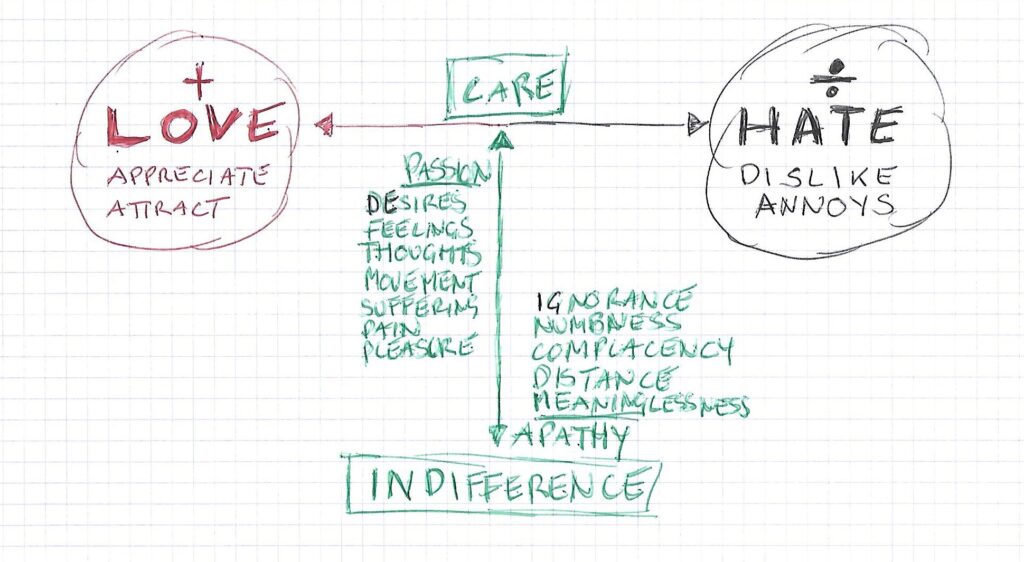 CARE
+
LOVE
APPRECIATE
ATTRACT
÷
HATE
DISLIKE
ANNOYS
PASSION
DESIRES
FEELINGS
THOUGHTS
MOVEMENT
SUFFERING
PAIN
PLEASURE
IGNORANCE
NUMBNESS
COMPLACENCY
DISTANCE
MEANINGLESSNESS
APATHY
INDIFFERENCE